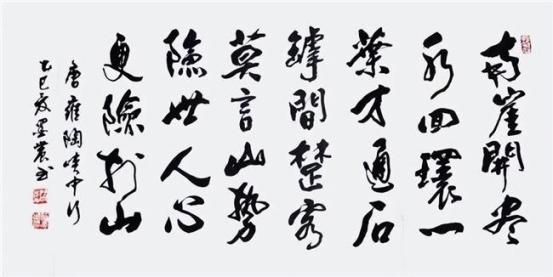 两崖開尽
水回環一
葉才通石
罅間楚客
莫言山勢
險世人心
更險於山
唐雍陶峡中行
乙巳夏墨農书